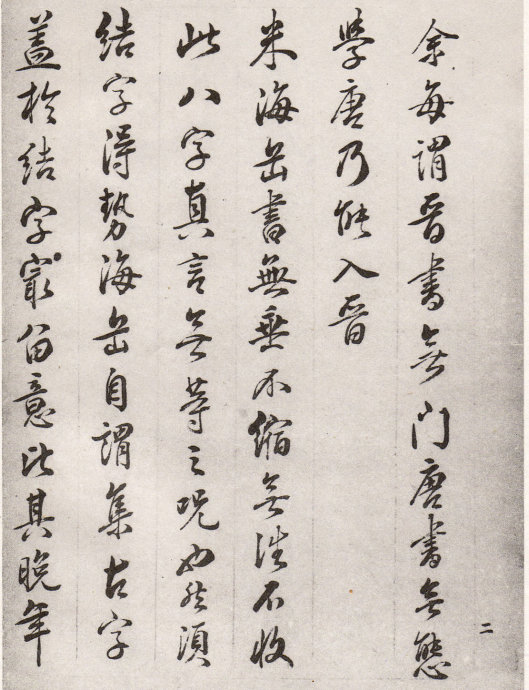 余每謂晉書無門唐書無態
學唐乃能入晉
米海岳書無垂不縮無往不收
此八字真言無等之咒也然須
結字得勢海岳自謂集古字
蓋於結字最留意此其晚年
二